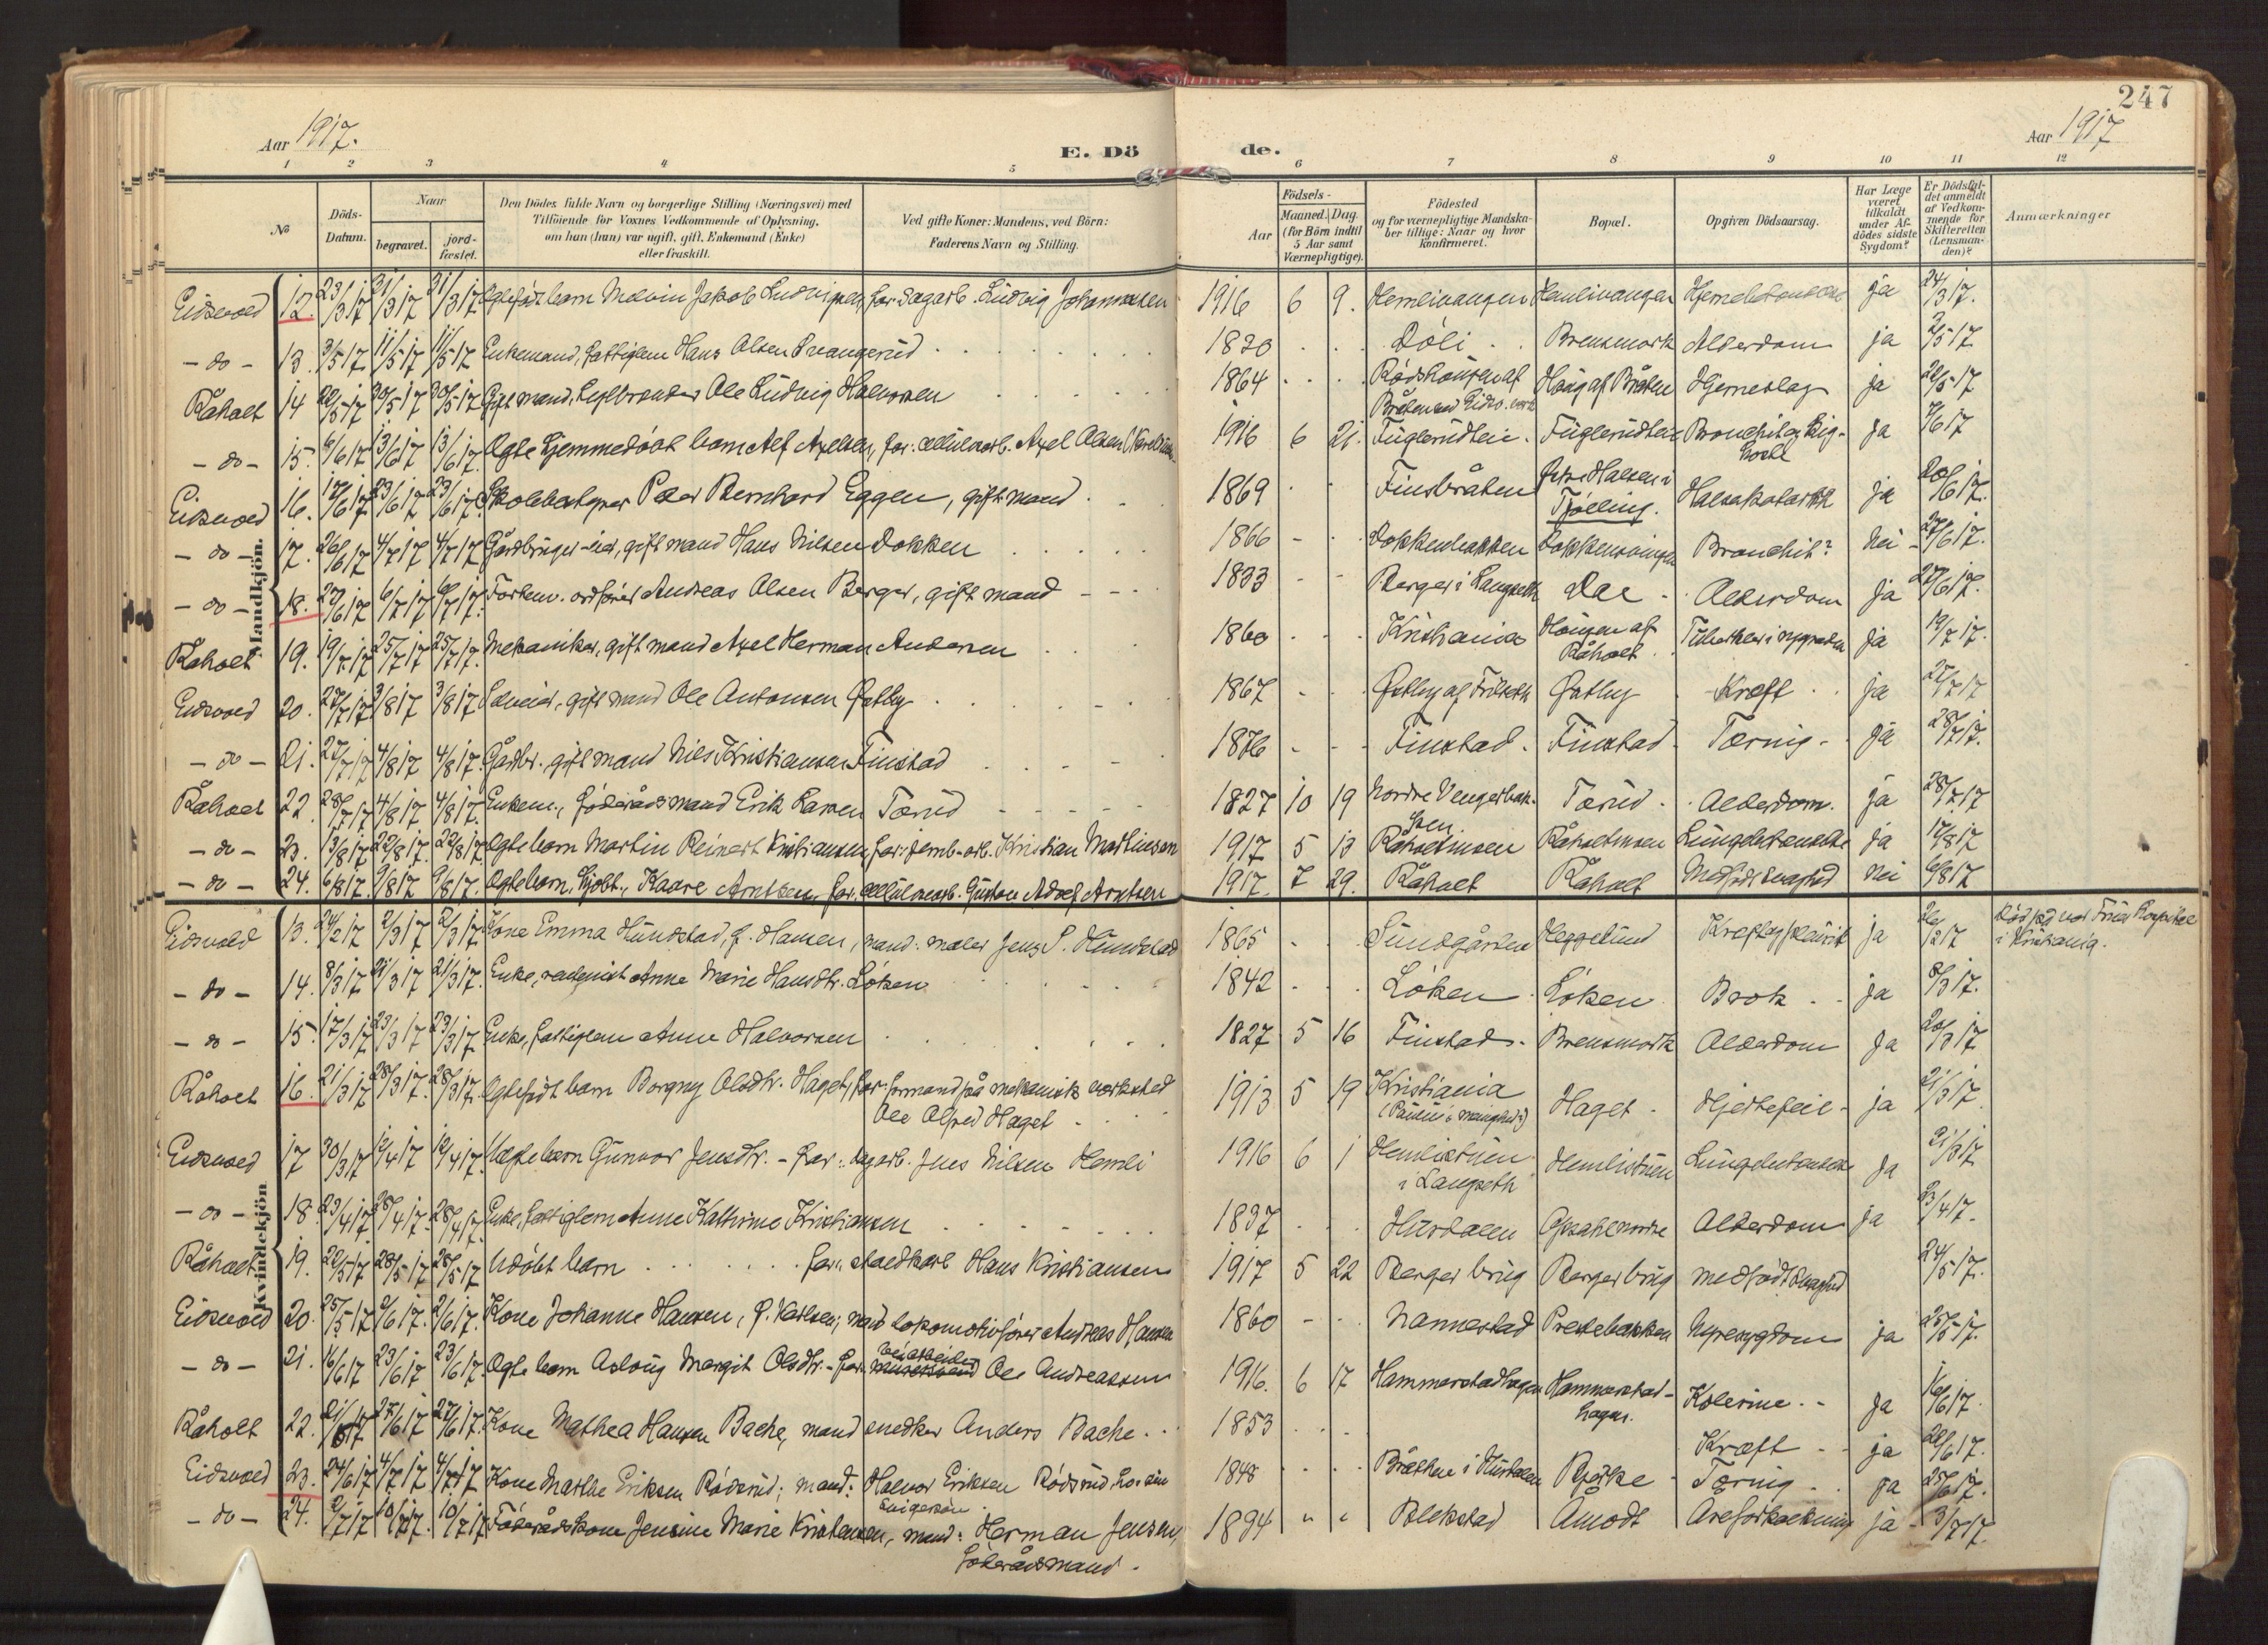 247
Aar 1917.
E. Dö
de.
Aar 1917
1 2 3 4 5 6 7 8 9 10 11 12
No
Döds-
Datum.
Naar
begravet.
jord-
fæstet.
Den Dödes fulde Navn og borgerlige Stilling (Næringsvei) med
Tilföiende for Voxnes Vedkommende af Oplysning,
om han (hun) var ugift, gift, Enkemand (Enke)
eller fraskilt.
Ved gifte Koner: Mandens, ved Börn:
Faderens Navn og Stilling.
Aar
Födsels-
Maaned. Dag.
(for Börn indtil
5 Aar samt
Værnepligtige).
Födested
og for værnepligtige Mandska-
ber tillige: Naar og hvor
Konfirmeret.
Bopæl.
Opgiven Dödsaarsag.
Har Læge
været
tilkaldt
under Af-
dödes sidste
Sygdom?
Er Dödsfal-
det anmeldt
af Vedkom-
mende for
Skifteretten
(Lensman-
den)?
Anmærkninger
Mandkjön.
Eidsvold 12. 23/3 17 31/3 17 31/3 17 Ægtefödt barn Melvin Jakob Ludvigsen, far: sagarb. Ludvig Johannessen 1916 6 9. Hemlivangen Hemlivangen ja 24/3 17.
- do - 13. 3/5 17 11/5 17 11/5 17 Enkemand, fattiglem Hans Olsen Svangerud 1830 Döli Brensmork Alderdom ja 2/5 17
Råholt 14 22/5 17 30/5 17 30/5 17 Gift mand, Ole Ludvig Halvorsen 1864 Haug af Bråten Hjerneslag ja 22/5 17
Bråten ved Eidsv. verk
- do - 15. 6/6 17 13/6 17 13/6 17 Ægte hjemmedöbt barn Alf Axelsen, far: cellulosearb. Axel Olsen 1916 6 21. Fuglerudteie Fuglerudteie Bronchit og Kig- ja 7/6 17
hoste
Eidsvold 16. 17/6 17 23/6 17 23/6 17 Skolebestyrer Peter Bernhard Eggen, gift mand 1869 Finsbråten Östre Halsen i Halskatarrh ja 20/6 17.
Tjölling.
- do - 17. 26/6 17 4/7 17 4/7 17 Gårdbruger-eier, gift mand Hans Nilsen Dokken 1866 Dokkenbakken Dokkensvingen Bronchit? Nei 27/6 17.
- do - 18. 27/6 17 6/7 17 6/7 17. Forhenv. ordförer Andreas Olsen Berger, gift mand 1833 Berger i Langseth Dal Alderdom ja 27/6 17.
Råholt 19. 19/7 17 25/7 17 25/7 17. Mekaniker, gift mand Axel Herman Andersen 1860 Kristiania Haugen af Tuberkler i ryggraden ja 19/7 17.
Råholt
Eidsvold 20. 27/7 17 3/8 17 3/8 17 Selveier, gift mand Ole Antonsen Östby 1867 Östby af Frilseth Östby Kræft ja 27/7 17
- do - 21. 27/7 17 4/8 17 4/8 17. Gårdbr. gift mand Nils Kristiansen Finstad 1876 Finstad Finstad Tæring ja 28/7 17.
Råholt 22. 28/7 17 4/8 17 4/8 17. Enkem., föderådsmand Erik Larsen Tærud 1827 10 19 Nordre Vengerbak- Tærud Alderdom. ja 28/7 17
ken
- do - 23. 13/8 17 22/8 17 22/8 17. Ægte barn Martin Reinert Kristiansen, far: jernb.-arb. Kristian Martinsen 1917 5 13 Råholtmoen Råholtmoen Lungebetændelse ja 17/8 17
- do - 24. 6/8 17. 9/8 17 9/8 17. Ægte barn, hjdöbt, Kaare Arntsen, far: cellulosearb. Gustav Adolf Arntsen 1917. 7 29. Råholt Råholt Medfödt svaghed Nei 6/8 17
Kvindekjön
Eidsvold 13. 24/2 17 2/3 17 2/3 17. Kone Emma Hundstad, f. Hansen, mand: maler Jens P. Hundstad 1865 Sundgården Heggelund ja 26/2 17 Dödsted var Frue Hospital
i Kristiania.
- do - 14. 8/3 17 21/3 17 21/3 17. Enke, Anne Marie Hansdtr. Löken 1842 Löken Löken Brok ja 8/3 17.
- do - 15. 17/3 17 23/3 17 23/3 17. Enke, fattiglem Anne Halvorsen 1827 5 16 Finstad Brensmork Alderdom ja 20/3 17
Råholt 16. 21/3 17 28/3 17. 28/3 17. Ægtefödt barn Borgny Olsdtr. Haget, far: formand på mekanisk værksted 1913 5 19 Kristiania Haget Hjertefeil ja 21/3 17
Ole Alfred Haget
Eidsvold 17 30/3 17 12/4 17 12/4 17. Uægte barn Gunvor Jensdtr. - far: dagarb. Jens Nilsen Hemli 1916 6 1 Hemlistuen Hemlistuen Lungebetændelse ja 31/3 17
i Langseth
- do - 18. 23/4 17 28/4 17. 28/4 17. Enke, fattiglem Anne Kathrine Kristiansen 1837 Hurdalen Alderdom ja 23/4 17.
Råholt 19. 22/5 17 28/5 17 28/5 17 Udöbt barn far: staldkarl Hans Kristiansen 1917 5 22 Berger brug Berger brug medfödt svaghed 24/5 17.
Eidsvold 20. 25/5 17 2/6 17. 2/6 17. Kone Johanne Hansen, f. Karlsen, mand lokomotivförer Andreas Hansen 1860 Nannestad Prestebakken Nyresygdom ja 25/5 17.
- do - 21. 16/6 17 23/6 17 23/6 17. Ægte barn Aslaug Margit Olsdtr. - far: veiarbeider Ole Andreassen 1916. 6 17 Hammerstadhagen Hammerstad- Kolerine ja 16/6 17.
hagen.
Råholt 22. 21/6 17 27/6 17 27/6 17. Kone Mathea Hansen Bache, mand snedker Anders Bache 1853 Kræft ja 22/6 17.
Eidsvold 23. 24/6 17 4/7 17 4/7 17 Kone Marthe Eriksen Rödsrud; mand: Halvor Eriksen Rödsrud, hos sin 1848 Bråthen i Hurdalen Bjerke Tæring ja 25/6 17.
svigersön
- do - 24. 2/7 17 10/7 17. 10/7 17 Föderådskone Jensine Marie Kristensen, mand: Herman Jensen, 1834 " " Blekstad Åmodt Areforkalkning ja 3/7 17.
föderådsmand.